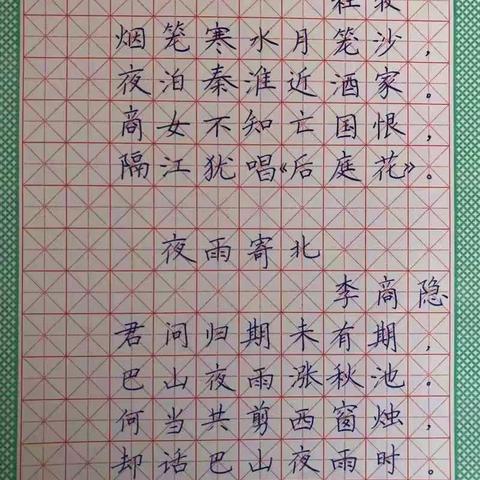 杜牧
烟笼寒水月笼沙,
夜泊秦淮近酒家。
商女不知亡国恨,
隔江犹唱《后庭花》。
夜雨寄北
李商隐
君问归期未有期,
巴山夜雨涨秋池。
何当共剪西窗烛,
却话巴山夜雨时。